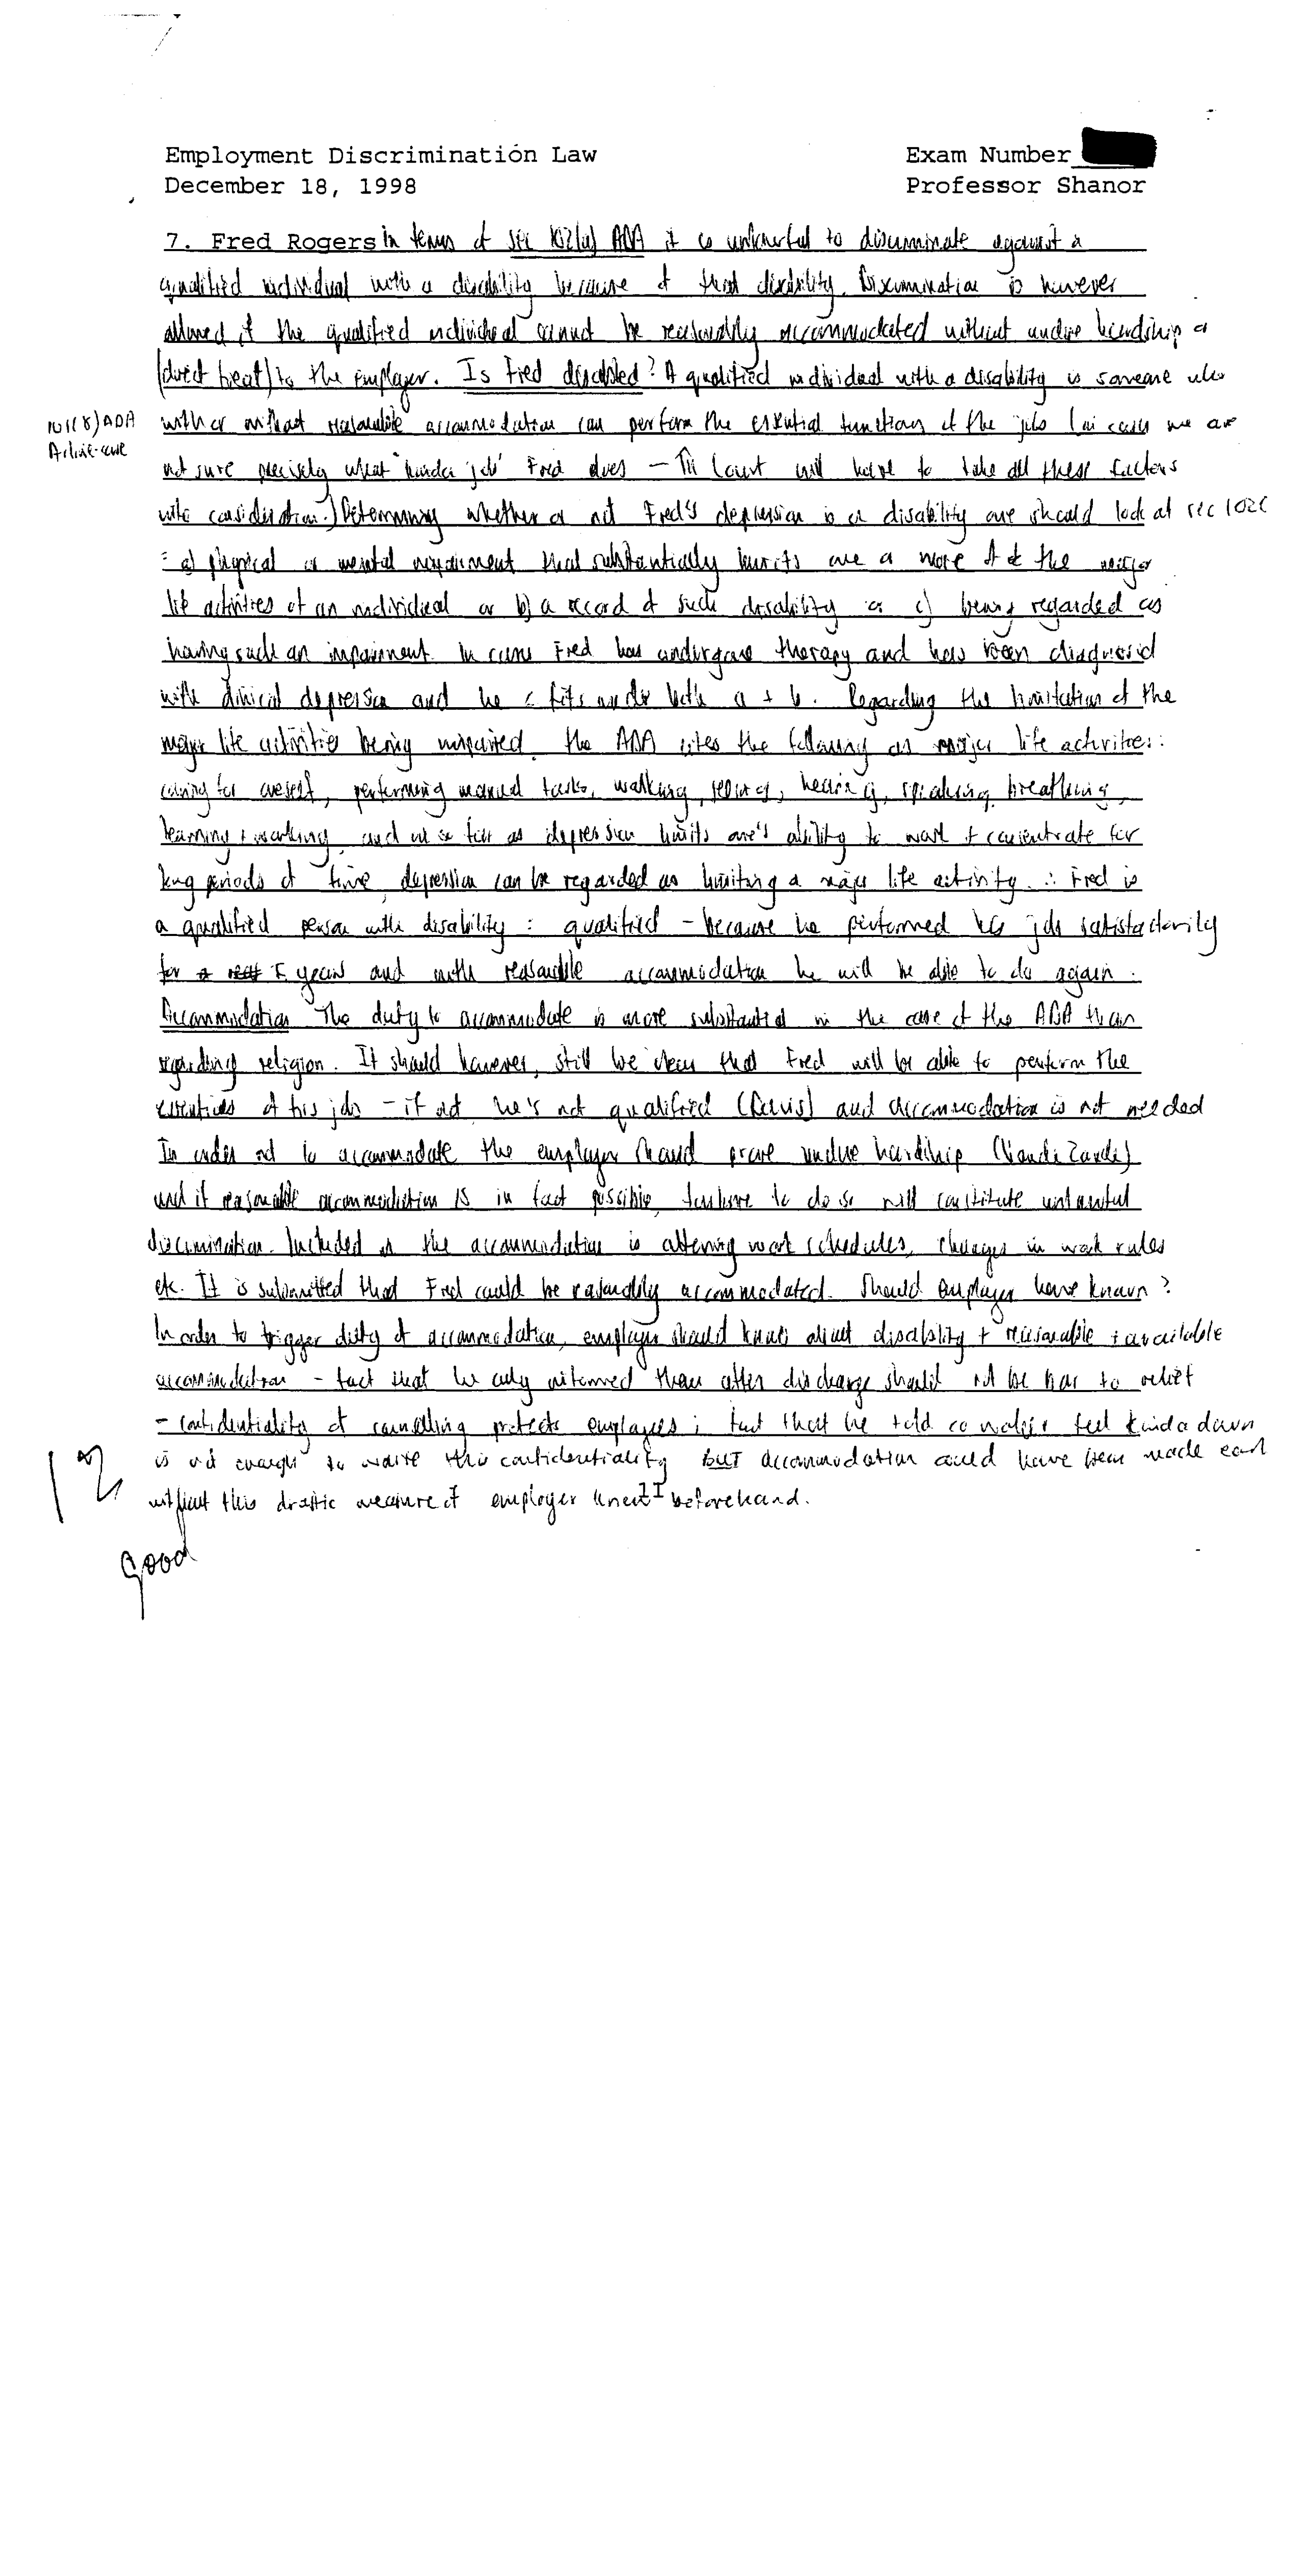 Employment Discrimination Law
Exam Number
December 18, 1998
Professor Shanor
7. Fred Rogers in terms of sec 102(a) ADA it is unlawful to discriminate against a
qualified individual with a disability because of that disability. Discrimination is however
allowed if the qualified individual cannot be reasonably accommodated without undue hardship or
(direct treat) to the employer. Is Fred disabled? A qualified individual with a disability is someone who
101(8) ADA
with or without reasonable accommodation can perform the essential functions of the job (in casu we are
not sure precisely what "kinda job" Fred does – The Court will have to take all these factors
into consideration.) Determining whether or not Fred's depression is a disability one should look at sec
= a) physical or mental impairment that substantially limits one or more of the major
life activities of an individual or b) a record of such disability or c) being regarded as
having such an impairment. In casu Fred has undergone therapy and has been diagnosed
with clinical depression and he fits under both a + b. Regarding the limitation of the
major life activities being impaired, the ADA cites the following as major life activities:
caring for oneself, performing manual tasks, walking, seeing, hearing, speaking, breathing,
learning + working, and in so far as depression limits one's ability to work + concentrate for
long periods of time, depression can be regarded as limiting a major life activity. ∴ Fred is
a qualified person with disability: qualified – because he performed his job satisfactorily
for 5 years and with reasonable accommodation he will be able to do again.
Accommodation The duty to accommodate is more substantial in the case of the ADA than
regarding religion. It should however, still be clear that Fred will be able to perform the
essentials of his job – if not he's not qualified (Davis) and accommodation is not needed
In order not to accommodate the employer should prove undue hardship (Vande Zande)
and if reasonable accommodation is in fact possible, failure to do so will constitute unlawful
discrimination. Included in the accommodation is altering work schedules, changes in work rules
etc. It is submitted that Fred could be reasonably accommodated. Should employer have known?
In order to trigger duty of accommodation, employer should know about disability + reasonable + available
accommodation – fact that he only informed them after discharge should not be bar to relief
– confidentiality of counselling protects employees; fact that he told co worker feel kinda down
is not enough to waive this confidentiality BUT accommodation could have been made
without this drastic measure if employer knew beforehand.
12
Good